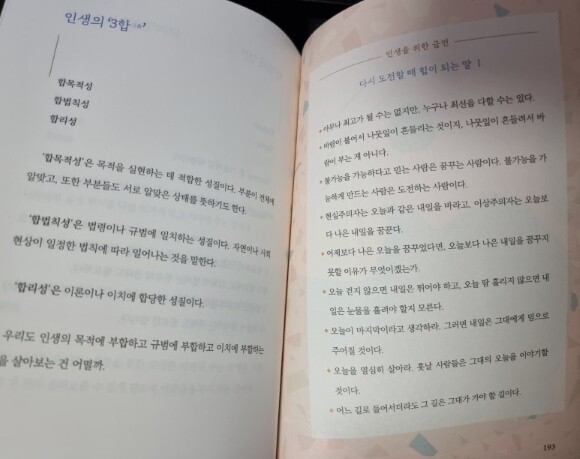 인생의 '3합'
합목적성
합법칙성
합리성
'합목적성'은 목적을 실현하는 데 적합한 성질이다. 부분이 전체에
알맞고, 또한 부분들도 서로 알맞은 상태를 뜻하기도 한다.
'합법칙성'은 법령이나 규범에 일치하는 성질이다. 자연이나 사회
현상이 일정한 법칙에 따라 일어나는 것을 말한다.
'합리성'은 이론이나 이치에 합당한 성질이다.
우리도 인생의 목적에 부합하고 규범에 부합하고 이치에 부합하는
을 살아보는 건 어떨까.
인생을 위한 금언
다시 도전할 때 힘이 되는 말 1
• 아무나 최고가 될 수는 없지만, 누구나 최선을 다할 수는 있다.
• 바람이 불어서 나뭇잎이 흔들리는 것이지, 나뭇잎이 흔들려서 바
람이 부는 게 아니다.
• 불가능을 가능하다고 믿는 사람은 꿈꾸는 사람이다. 불가능을 가
능하게 만드는 사람은 도전하는 사람이다.
• 현실주의자는 오늘과 같은 내일을 바라고, 이상주의자는 오늘보
다 나은 내일을 꿈꾼다.
• 어제보다 나은 오늘을 꿈꾸었다면, 오늘보다 나은 내일을 꿈꾸지
못할 이유가 무엇이겠는가.
• 오늘 걷지 않으면 내일은 뛰어야 하고, 오늘 땀 흘리지 않으면 내
일은 눈물을 흘려야 할지 모른다.
• 오늘이 마지막이라고 생각하라. 그러면 내일은 그대에게 덤으로
주어질 것이다.
• 오늘을 열심히 살아라. 훗날 사람들은 그대의 오늘을 이야기할
것이다.
• 어느 길로 들어서더라도 그 길은 그대가 가야 할 길이다.
193